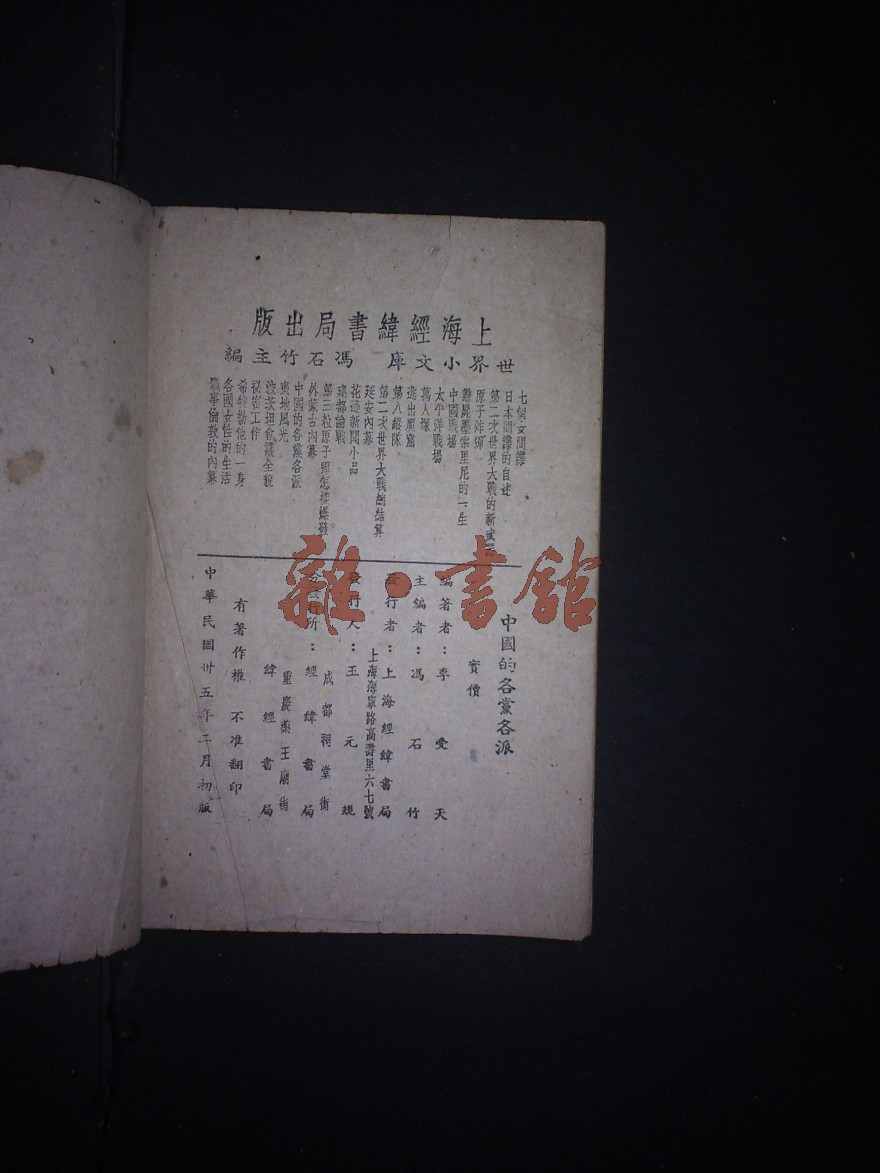 上海經緯書局出版
世界小文庫 馮石竹主編
七個女間諜
日本間諜的自述
第二次世界大戰的新武器
原子炸彈
難屍墨索里尼的一生
中國戰場
太平洋戰場
萬人塚
逃出魔窟
第八縱隊
第二次世界大戰的結算
延安內幕
花邊新聞小品
建都論戰
第三粒原子彈怎樣爆發
外蒙古內幕
中國的各黨各派
東北風光
波茨坦會議全貌
希特勒他的一身
各國女性的生活
戰爭倫敦的內幕
中國的各黨各派
實價
編著者：李愛天
主編者：馮石竹
發行者：上海經緯書局
上海海寧路高壽里六七號
發行人：王元規
成都祠堂街
分發行所：經緯書局
重慶藥王廟街
緯經書局
有著作權 不准翻印
中華民國卅五年二月初版
雜·書館